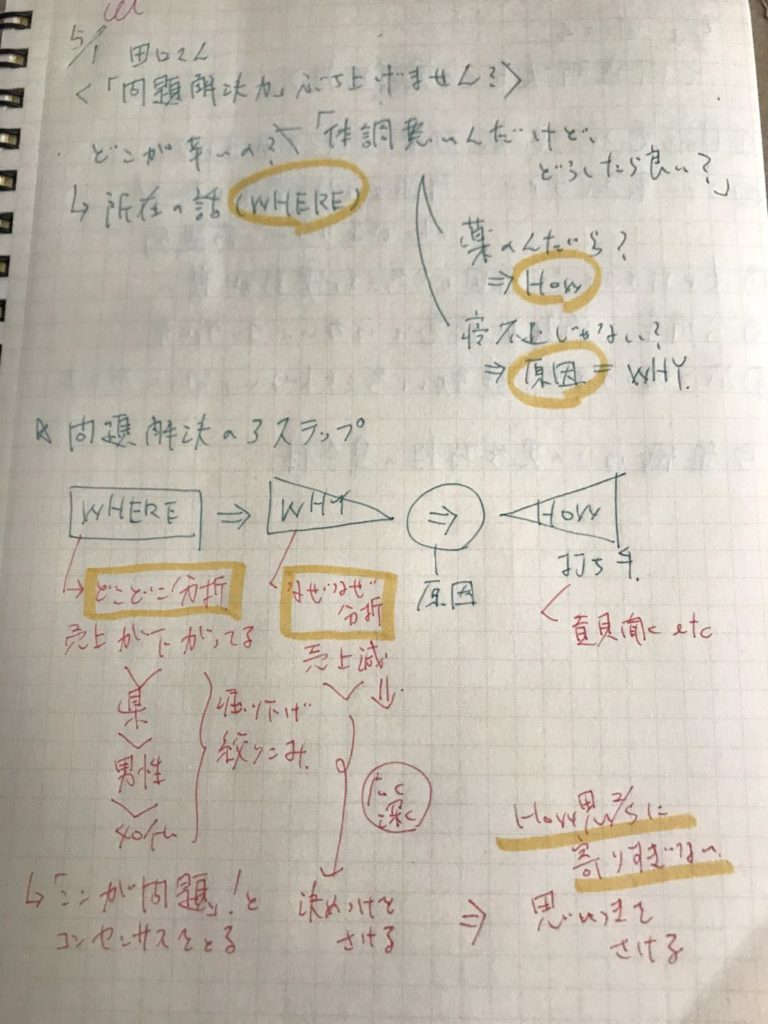 5/1 田口さん
<「問題解決力」ぶち上げません?>
どこが辛いの?
「体調悪いんだけど、
どうしたら良い?」
↳ 所在の話 (WHERE)
薬のんだら?
⇒ HOW
寝不足じゃない?
⇒ 原因 = WHY.
☆ 問題解決の3ステップ
WHERE ⇒ WHY ⇒ HOW
原因
打ち手
どこどこ分析
なぜなぜ
分析
売上が下がってる
売上減
県
男性
40代
掘り下げ
絞りこみ
広く
深く
HOW思考に
寄りすぎない
↳「ここが問題」!と
コンセンサスをとる
決めつけを
さける
⇒ 思いつきを
さける